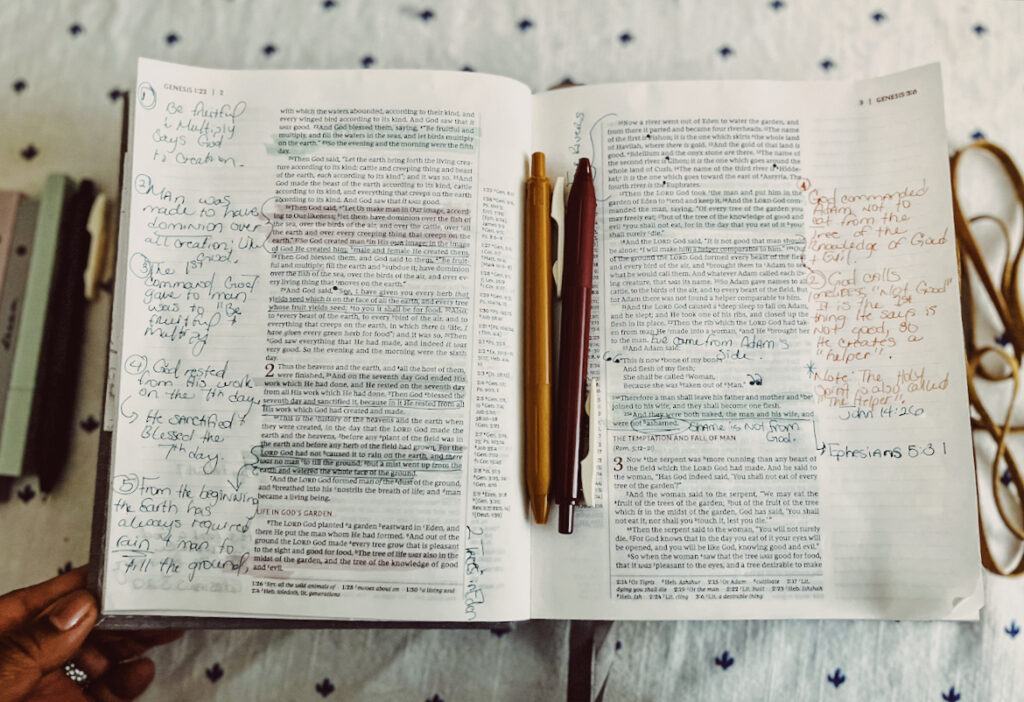 GENESIS 1:22 | 2
① Be fruitful
& Multiply
Says God
to Creation.
② Man was
made to have
dominion over
all creation; Like
God.
③ The 1st
command God
gave to man
was to Be
fruitful &
multiply
④ God rested
from His work
on the 7th day
↳ He sanctified &
Blessed the
7th day.
⑤ From the beginning
the Earth has
always required
rain & man to
till the ground,
with which the waters abounded, according to their kind, and
every winged bird according to its kind. And God saw that it
was good. 22And God blessed them, saying, "Be fruitful and
multiply, and fill the waters in the seas, and let birds multiply
on the earth." 23So the evening and the morning were the fifth
day.
24Then God said, "Let the earth bring forth the living crea-
ture according to its kind: cattle and creeping thing and beast
of the earth, each according to its kind"; and it was so. 25And
God made the beast of the earth according to its kind, cattle
according to its kind, and everything that creeps on the earth
according to its kind. And God saw that it was good.
26Then God said, "Let Us make man in Our image, accord-
ing to Our likeness; let them have dominion over the fish of
the sea, over the birds of the air, and over the cattle, over all
the earth and over every creeping thing that creeps on the
earth." 27So God created man in His own image; in the image
of God He created him; male and female He created them.
28Then God blessed them, and God said to them, "Be fruit-
ful and multiply; fill the earth and subdue it; have dominion
over the fish of the sea, over the birds of the air, and over ev-
ery living thing that moves on the earth."
29And God said, "See, I have given you every herb that
yields seed which is on the face of all the earth, and every tree
whose fruit yields seed; to you it shall be for food. 30Also,
to every beast of the earth, to every bird of the air, and to
everything that creeps on the earth, in which there is life, I
have given every green herb for food"; and it was so. 31Then
God saw everything that He had made, and indeed it was
very good. So the evening and the morning were the sixth
day.
2 Thus the heavens and the earth, and all the host of them,
were finished. 2And on the seventh day God ended His
work which He had done, and He rested on the seventh day
from all His work which He had done. 3Then God blessed the
seventh day and sanctified it, because in it He rested from all
His work which God had created and made.
4This is the history of the heavens and the earth when
they were created, in the day that the LORD God made the
earth and the heavens, 5before any plant of the field was in
the earth and before any herb of the field had grown. For the
LORD God had not caused it to rain on the earth, and there
was no man to till the ground; 6but a mist went up from the
earth and watered the whole face of the ground.
7And the LORD God formed man of the dust of the ground,
and breathed into his nostrils the breath of life; and man
became a living being.
LIFE IN GOD'S GARDEN
8The LORD God planted a garden eastward in Eden, and
there He put the man whom He had formed. 9And out of the
ground the LORD God made every tree grow that is pleasant
to the sight and good for food. The tree of life was also in the
midst of the garden, and the tree of the knowledge of good
and evil.
2 Trees in Eden
3 | GENESIS 3:6
Rivers
10Now a river went out of Eden to water the garden, and
from there it parted and became four riverheads. 11The name
of the first is Pishon; it is the one which skirts the whole land
of Havilah, where there is gold. 12And the gold of that land is
good. Bdellium and the onyx stone are there. 13The name of
the second river is Gihon; it is the one which goes around the
whole land of Cush. 14The name of the third river is Hidde-
kel; it is the one which goes toward the east of Assyria. The
fourth river is the Euphrates.
15Then the LORD God took the man and put him in the
garden of Eden to tend and keep it. 16And the LORD God com-
manded the man, saying, "Of every tree of the garden you
may freely eat; 17but of the tree of the knowledge of good and
evil you shall not eat, for in the day that you eat of it you
shall surely die."
18And the LORD God said, "It is not good that man should
be alone; I will make him a helper comparable to him." 19Out
of the ground the LORD God formed every beast of the field
and every bird of the air, and brought them to Adam to see
what he would call them. And whatever Adam called each liv-
ing creature, that was its name. 20So Adam gave names to all
cattle, to the birds of the air, and to every beast of the field. But
for Adam there was not found a helper comparable to him.
21And the LORD God caused a deep sleep to fall on Adam,
and he slept; and He took one of his ribs, and closed up the
flesh in its place. 22Then the rib which the LORD God had tak-
en from man He made into a woman, and He brought her
to the man. Eve came from Adam's
Side.
23And Adam said:
"This is now bone of my bones
And flesh of my flesh;
She shall be called Woman,
Because she was taken out of Man."
24Therefore a man shall leave his father and mother and be
joined to his wife, and they shall become one flesh.
25And they were both naked, the man and his wife, and
were not ashamed. Shame is NOT from
God.
THE TEMPTATION AND FALL OF MAN
(Rom. 5:12–21)
3 Now the serpent was more cunning than any beast of
the field which the LORD God had made. And he said to
the woman, "Has God indeed said, 'You shall not eat of every
tree of the garden'?"
2And the woman said to the serpent, "We may eat the
fruit of the trees of the garden; 3but of the fruit of the tree
which is in the midst of the garden, God has said, 'You shall
not eat it, nor shall you touch it, lest you die.'"
4Then the serpent said to the woman, "You will not surely
die. 5For God knows that in the day you eat of it your eyes will
be opened, and you will be like God, knowing good and evil."
6So when the woman saw that the tree was good for food,
that it was pleasant to the eyes, and a tree desirable to make
① God commanded
Adam NOT to
eat from the
tree of the
knowledge of Good
& Evil.
② God calls
loneliness "Not Good"
It is the 1st
thing He says is
Not good, so
He creates a
"helper".
*Note: The Holy
Spirit is also called
"The Helper".
John 14:26
Ephesians 5:31